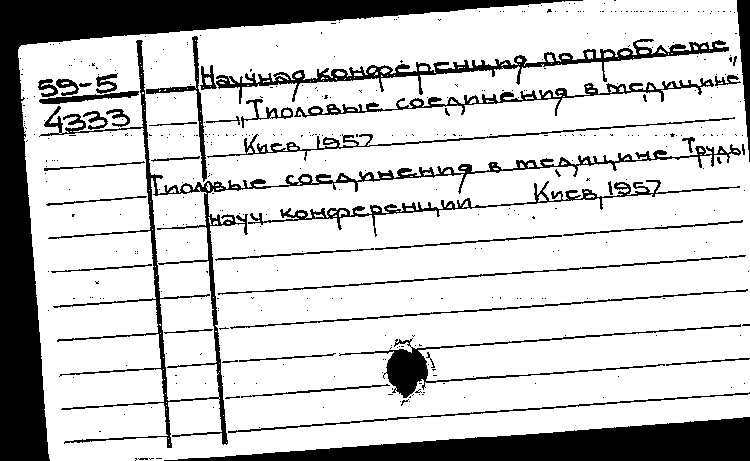 59-5
4333
Научная конференция по проблеме
„Тиоловые соединения в медицине"
Киев, 1957
Тиоловые соединения в медицине. Труды
науч. конференции. Киев, 1957